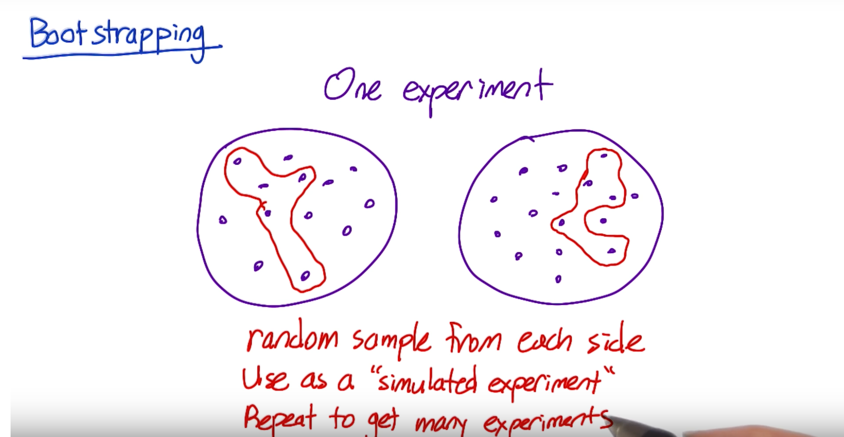 Bootstrapping
One experiment
random sample from each side
Use as a "simulated experiment"
Repeat to get many experiments